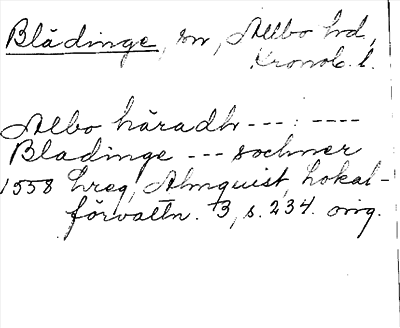 Blädinge, sn, Allbo hd,
Kronob. l.
Albo häradh --- : ----
Bladinge --- sochner
1558 hreg, Almquist, Lokal-
förvaltn. 3, s. 234. orig.